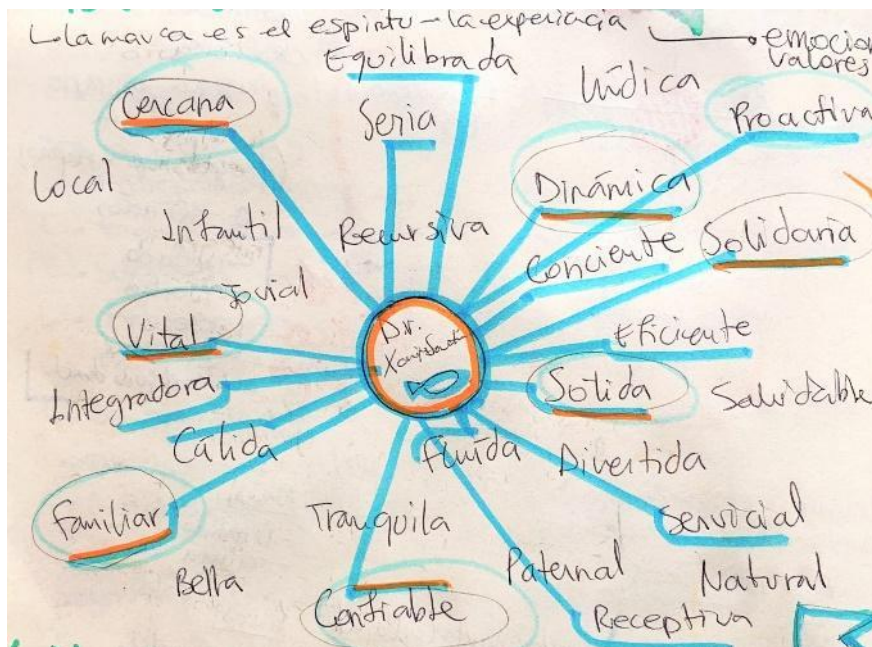 La marca es el espiritu - la experiencia
emocion
valores
Equilibrada
Lúdica
Cercana
Seria
Proactiva
Local
Dinámica
Infantil
Recursiva
Conciente
Solidaria
Jovial
Vital
Dr.
Eficiente
Integradora
Sólida
Saludable
Cálida
Fluída
Divertida
Familiar
Tranquila
Servicial
Bella
Paternal
Natural
Confiable
Receptiva